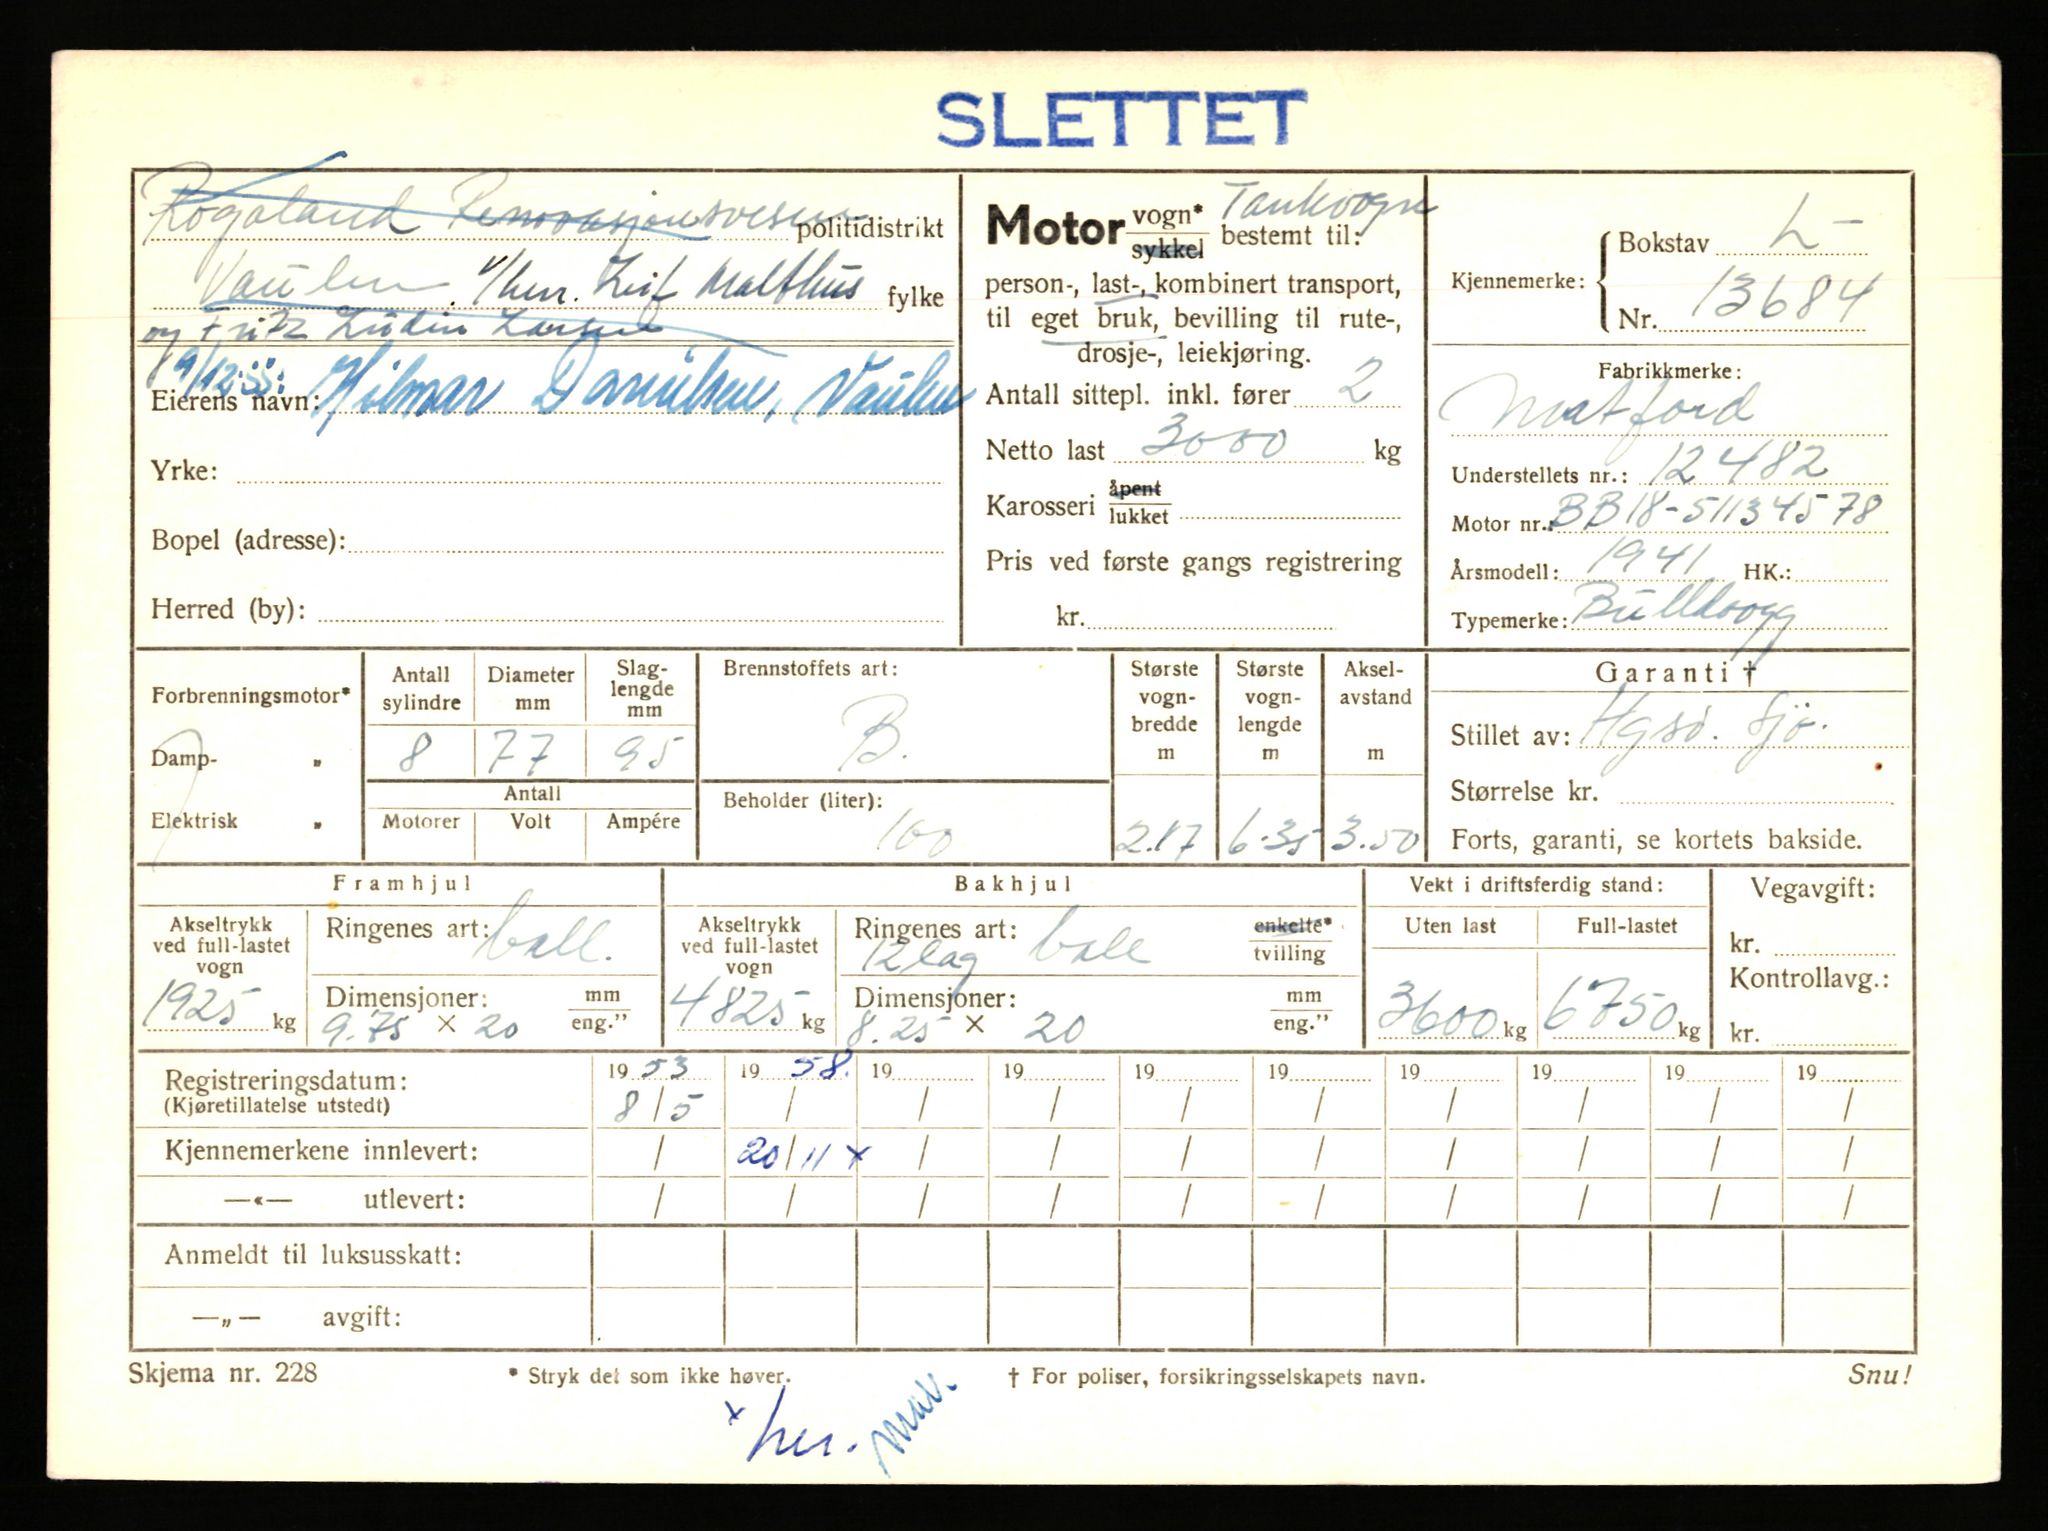 SLETTET
Rogaland Renovasjonsvesen politidistrikt
Vaulen. v/herr. Leif Malthus fylke
og Fritz Ludin Larsen
9/12.55:
Eierens navn: Hilmar Danielsen, Vaulen
Yrke:
Bopel (adresse):
Herred (by):
Motor vogn* Tankvogn
sykkel bestemt til:
person-, last-, kombinert transport,
til eget bruk, bevilling til rute-,
drosje-, leiekjøring.
Antall sittepl. inkl. fører 2
Netto last 3000 kg
Karosseri åpent
lukket
Pris ved første gangs registrering
kr.
Kjennemerke: Bokstav L-
Nr. 13684
Fabrikkmerke:
Matford
Understellets nr.: 12482
Motor nr.: BB18-51134578
Årsmodell: 1941 HK.:
Typemerke: Bulldogg
Forbrenningsmotor*
Damp- „
Elektrisk „
Antall sylindre Diameter mm Slag-lengde mm
8 77 95
Antall
Motorer Volt Ampére
Brennstoffets art:
B.
Beholder (liter):
100
Største vogn-bredde m
2.17
Største vogn-lengde m
6.35
Aksel-avstand m
3.50
Garanti †
Stillet av: Hgsø. Sjø.
Størrelse kr.
Forts, garanti, se kortets bakside.
Framhjul
Akseltrykk ved full-lastet vogn
1925 kg
Ringenes art: ball.
Dimensjoner: mm
9.75 × 20 eng."
Bakhjul
Akseltrykk ved full-lastet vogn
4825 kg
Ringenes art: ball enkelte*
12 lag tvilling
Dimensjoner: mm
8.25 × 20 eng."
Vekt i driftsferdig stand:
Uten last Full-lastet
3600 kg 6750 kg
Vegavgift:
kr.
Kontrollavg.:
kr.
Registreringsdatum: 1953 1958. 19 19 19 19 19 19 19 19
(Kjøretillatelse utstedt) 8/5 / / / / / / / / /
Kjennemerkene innlevert: / 20/11 x / / / / / / / /
—«— utlevert: / / / / / / / / / /
Anmeldt til luksusskatt:
—„— avgift:
Skjema nr. 228 * Stryk det som ikke høver. † For poliser, forsikringsselskapets navn. Snu!
x her.